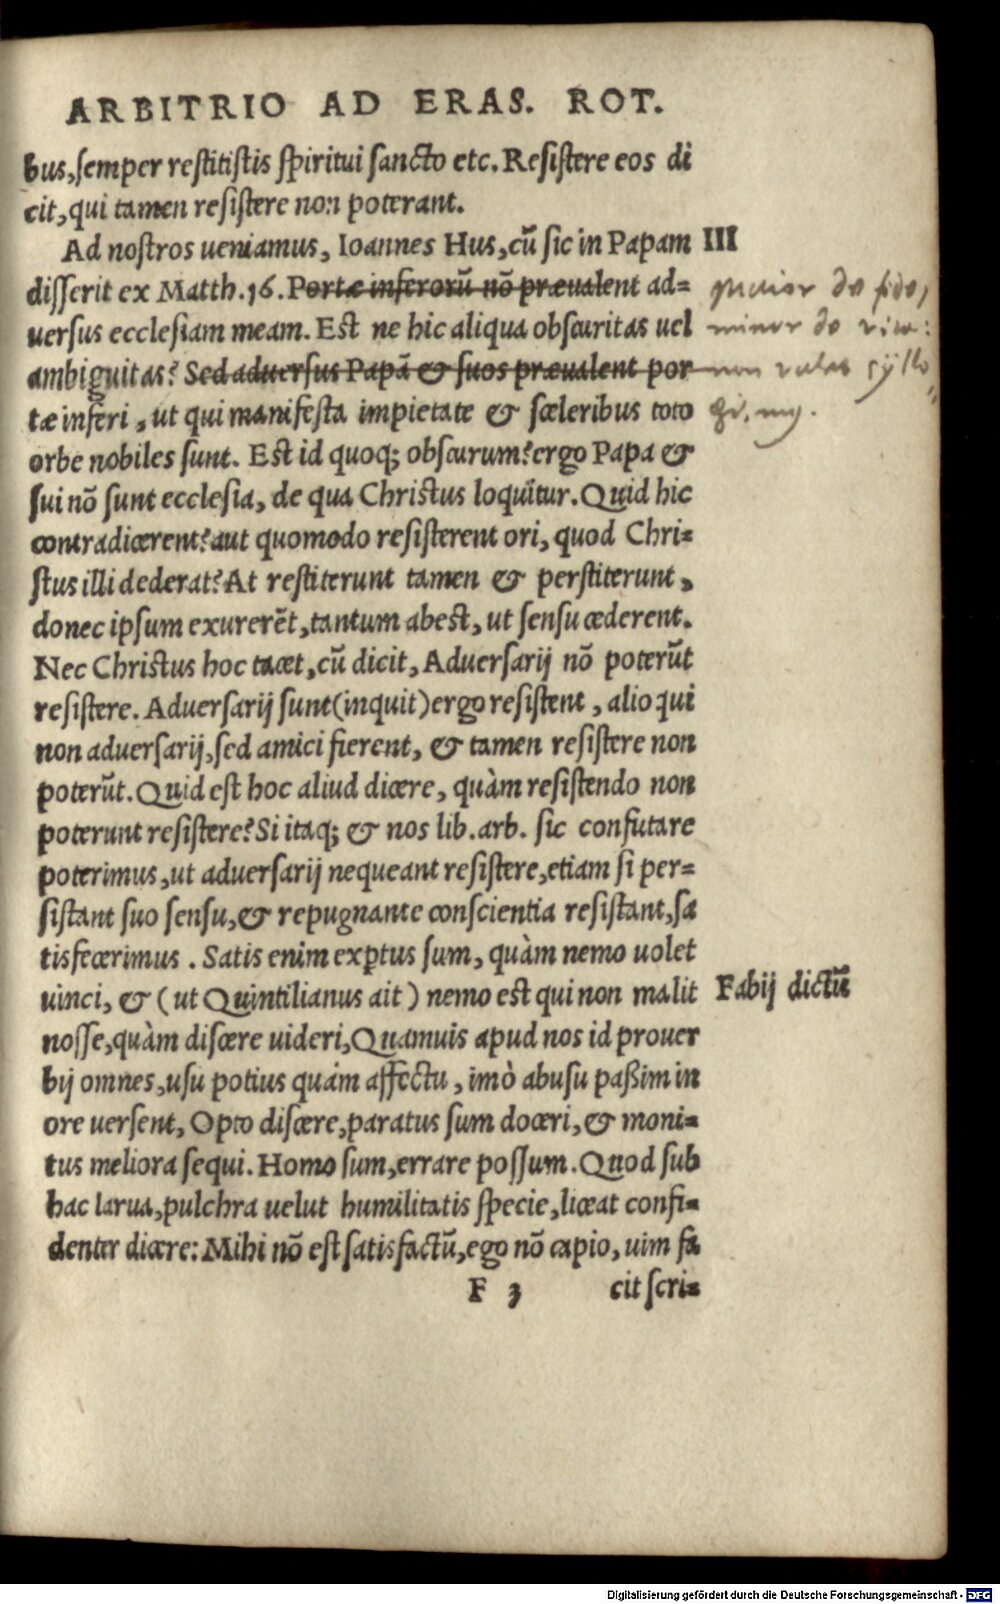 ARBITRIO AD ERAS. ROT.
bus, semper restitistis spiritui sancto etc. Resistere eos di
cit, qui tamen resistere non poterant.
Ad nostros ueniamus, Ioannes Hus, cū sic in Papam III
disserit ex Matth. 16. Portæ inferorū nō præualent ad=
uersus ecclesiam meam. Est ne hic aliqua obscuritas uel
ambiguitas? Sed aduersus Papā & suos præualent por
tæ inferi, ut qui manifesta impietate & sceleribus toto
orbe nobiles sunt. Est id quoq; obscurum? ergo Papa &
sui nō sunt ecclesia, de qua Christus loquitur. Quid hic
contradicerent? aut quomodo resisterent ori, quod Chri=
stus illi dederat? At restiterunt tamen & perstiterunt,
donec ipsum exurerēt, tantum abest, ut sensu cederent.
Nec Christus hoc tacet, cū dicit, Aduersarij nō poterūt
resistere. Aduersarij sunt (inquit) ergo resistent, alio qui
non aduersarij, sed amici fierent, & tamen resistere non
poterūt. Quid est hoc aliud dicere, quàm resistendo non
poterunt resistere? Si itaq; & nos lib. arb. sic confutare
poterimus, ut aduersarij nequeant resistere, etiam si per=
sistant suo sensu, & repugnante conscientia resistant, sa
tisfecerimus. Satis enim exptus sum, quàm nemo uolet
uinci, & (ut Quintilianus ait) nemo est qui non malit
nosse, quàm discere uideri, Quamuis apud nos id prouer
bij omnes, usu potius quàm affectu, imò abusu paßim in
ore uersent, Opto discere, paratus sum doceri, & moni=
tus meliora sequi. Homo sum, errare possum. Quod sub
hac larua, pulchra uelut humilitatis specie, liceat confi=
denter dicere: Mihi nō est satisfactū, ego nō capio, uim fa
F 3 cit scri=
maior de fide,
minor de vita:
non valet syllo
Fabij dictū